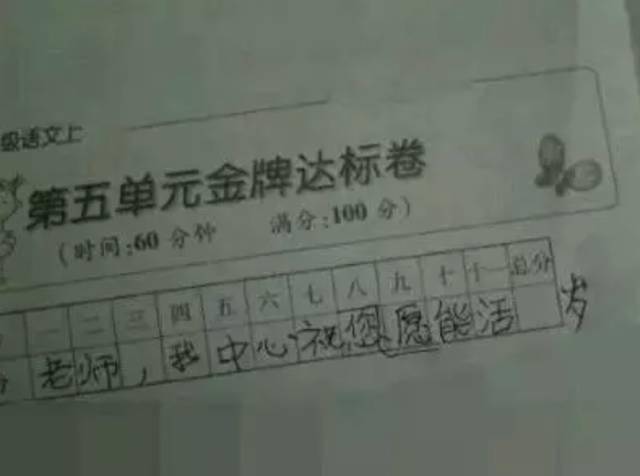 级语文上
第五单元金牌达标卷
(时间:60 分钟 满分:100 分)
一 二 三 四 五 六 七 八 九 十 十一 总分
分 老师,我中心祝您愿能活 岁